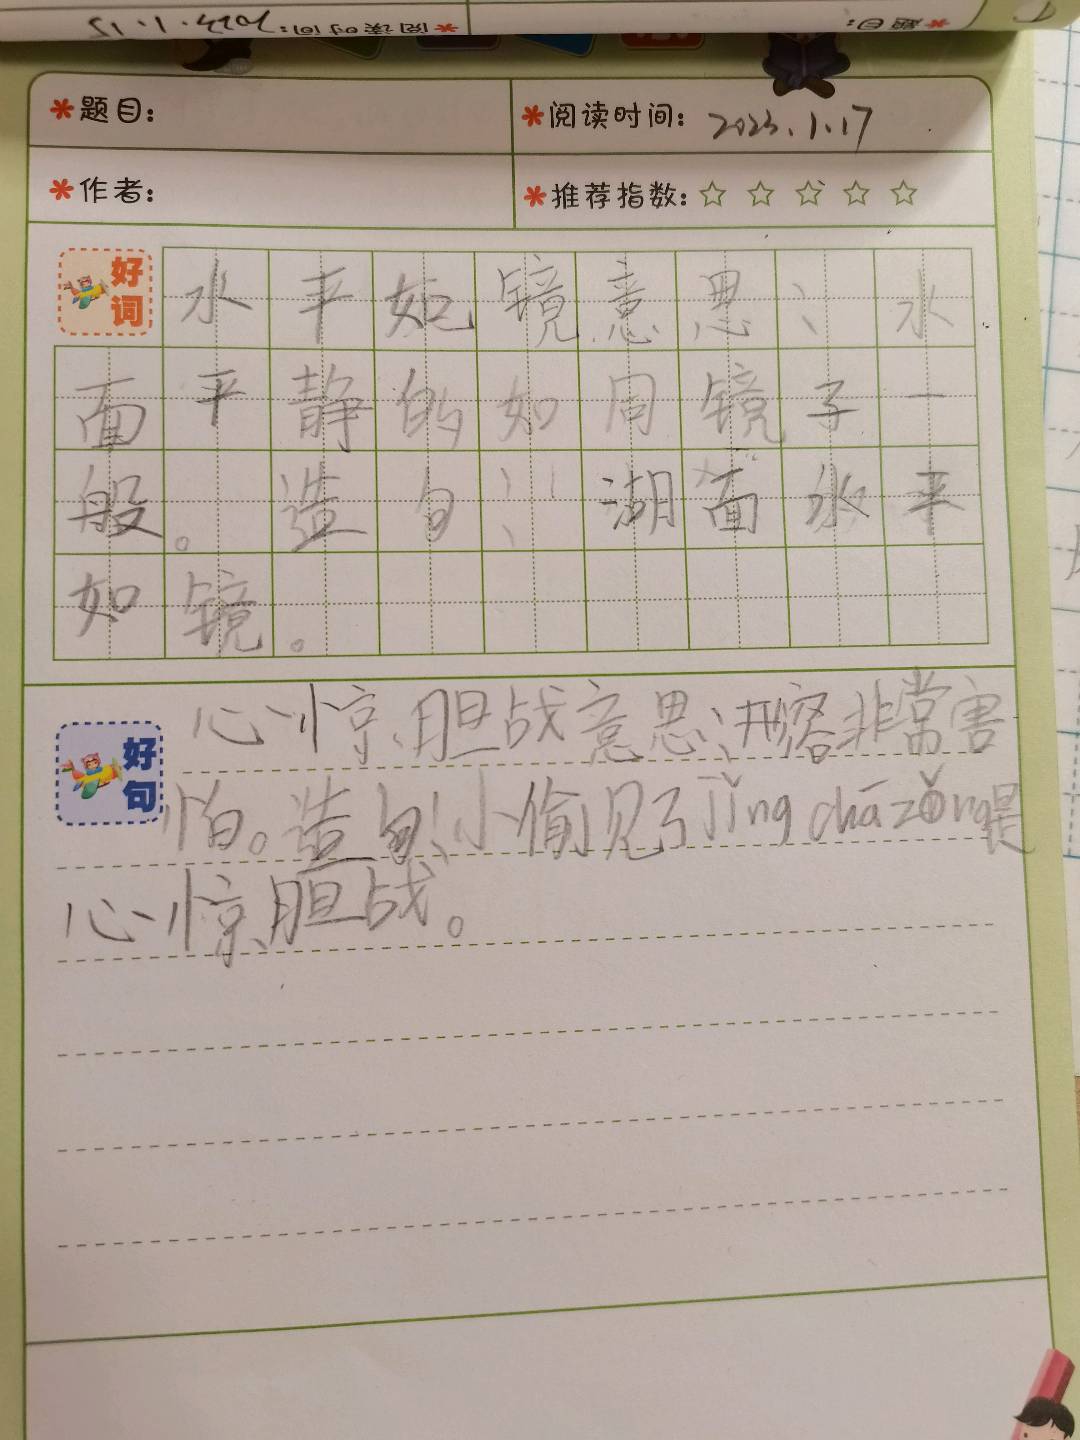 *阅读时间:2023.1.15
*题目:
*题目:
*阅读时间: 2023.1.17
*作者:
*推荐指数:☆☆☆☆☆
好词
水平如镜意思：水
面平静的如同镜子一
般。造句：湖面水平
如镜。
好句
心惊胆战意思：形容非常害
怕。造句：小偷见了jǐng chā zǒng是
心惊胆战。